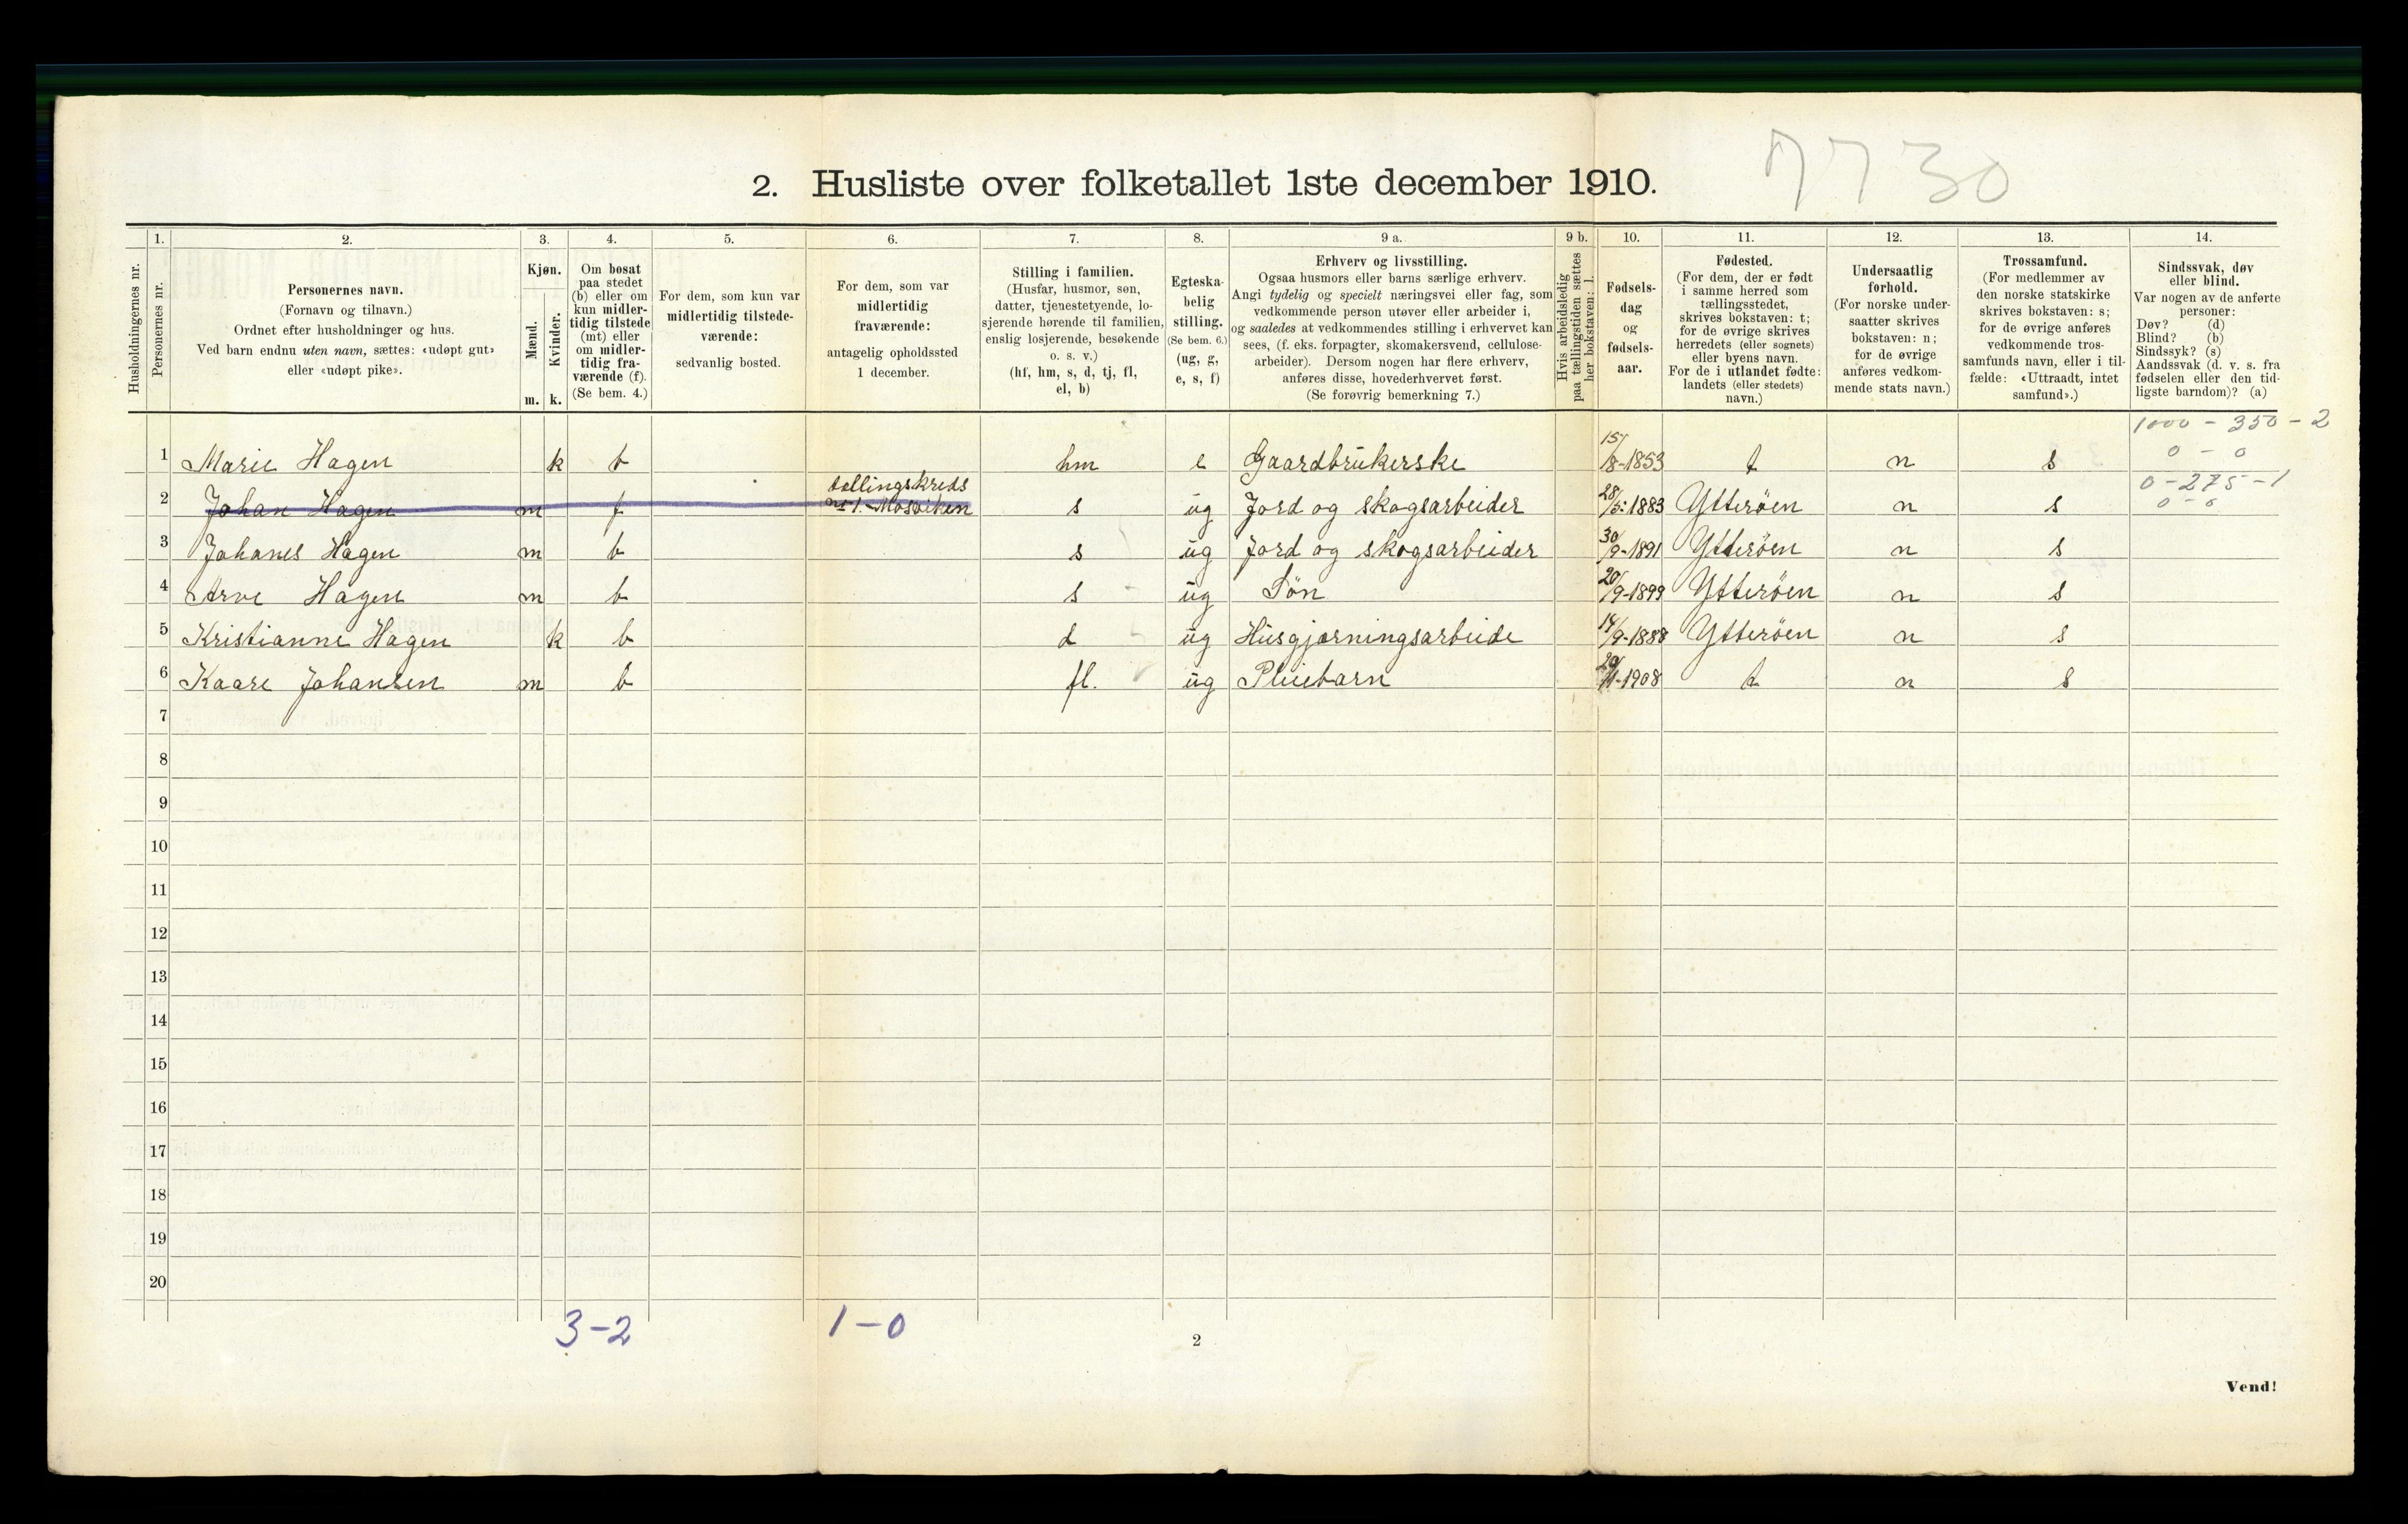 7730
2. Husliste over folketallet 1ste december 1910.
Husholdningernes nr.
1.
Personernes nr.
2.
Personernes navn.
(Fornavn og tilnavn.)
Ordnet efter husholdninger og hus.
Ved barn endnu uten navn, sættes: «udøpt gut»
eller «udøpt pike».
3.
Kjøn.
Mænd.
Kvinder.
m. k.
4.
Om bosat
paa stedet
(b) eller om
kun midler-
tidig tilstede
(mt) eller
om midler-
tidig fra-
værende (f).
(Se bem. 4.)
5.
For dem, som kun var
midlertidig tilstede-
værende:
sedvanlig bosted.
6.
For dem, som var
midlertidig
fraværende:
antagelig opholdssted
1 december.
7.
Stilling i familien.
(Husfar, husmor, søn,
datter, tjenestetyende, lo-
sjerende hørende til familien,
enslig losjerende, besøkende
o. s. v.)
(hf, hm, s, d, tj, fl,
el, b)
8.
Egteska-
belig
stilling.
(Se bem. 6.)
(ug, g,
e, s, f)
9 a.
Erhverv og livsstilling.
Ogsaa husmors eller barns særlige erhverv.
Angi tydelig og specielt næringsvei eller fag, som
vedkommende person utøver eller arbeider i,
og saaledes at vedkommendes stilling i erhvervet kan
sees, (f. eks. forpagter, skomakersvend, cellulose-
arbeider). Dersom nogen har flere erhverv,
anføres disse, hovederhvervet først.
(Se forøvrig bemerkning 7.)
9 b.
Hvis arbeidsledig
paa tællingstiden sættes
her bokstaven: l.
10.
Fødsels-
dag
og
fødsels-
aar.
11.
Fødested.
(For dem, der er født
i samme herred som
tællingsstedet,
skrives bokstaven: t;
for de øvrige skrives
herredets (eller sognets)
eller byens navn.
For de i utlandet fødte:
landets (eller stedets)
navn.)
12.
Undersaatlig
forhold.
(For norske under-
saatter skrives
bokstaven: n;
for de øvrige
anføres vedkom-
mende stats navn.)
13.
Trossamfund.
(For medlemmer av
den norske statskirke
skrives bokstaven: s;
for de øvrige anføres
vedkommende tros-
samfunds navn, eller i til-
fælde: «Uttraadt, intet
samfund».)
14.
Sindssvak, døv
eller blind.
Var nogen av de anførte
personer:
Døv? (d)
Blind? (b)
Sindssyk? (s)
Aandssvak (d. v. s. fra
fødselen eller den tid-
ligste barndom)? (a)
1000 - 350 - 2
1 Marie Hagen k b hm e Gaardbrukerske 15/8-1853 t n s 0 - 0
2 Johan Hagen m f tællingskreds nr 1. Mosviken s ug Jord og skogsarbeider 28/5-1883 Ytterøen n s 0-275-1
0-0
3 Johanes Hagen m b s ug Jord og skogsarbeider 30/9-1891 Ytterøen n s
4 Arve Hagen m b s ug Søn 20/9-1899 Ytterøen n s
5 Kristianne Hagen k b d ug Husgjærningsarbeide 14/9-1888 Ytterøen n s
6 Kaare Johansen m b fl. ug Pleiebarn -1908 t n s
7
8
9
10
11
12
13
14
15
16
17
18
19
20
3-2
1-0
2
Vend!